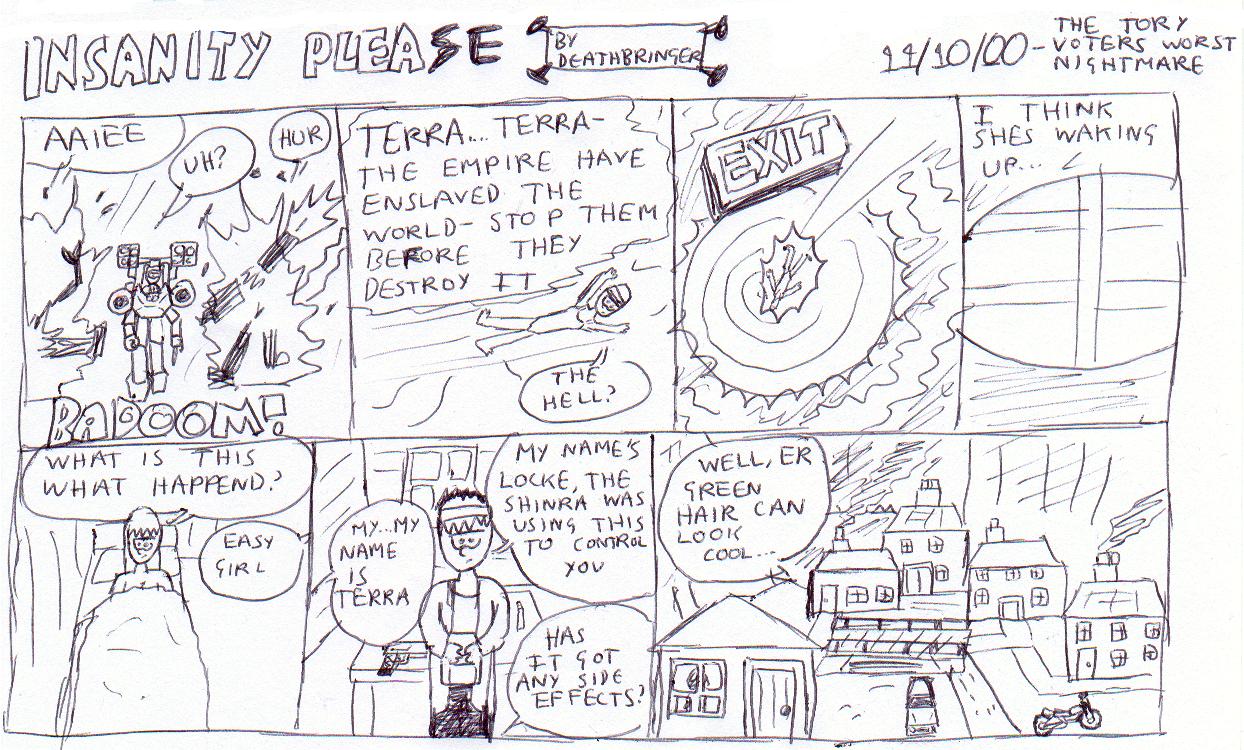 INSANITY PLEASE
BY
DEATHBRINGER
14/10/00 - THE TORY
VOTERS WORST
NIGHTMARE
AAIEE
UH?
HUR
BADOOM!
TERRA... TERRA-
THE EMPIRE HAVE
ENSLAVED THE
WORLD- STOP THEM
BEFORE THEY
DESTROY IT
THE
HELL?
EXIT
I THINK
SHES WAKING
UP...
WHAT IS THIS
WHAT HAPPEND?
EASY
GIRL
MY...MY
NAME
IS
TERRA
MY NAME'S
LOCKE, THE
SHINRA WAS
USING THIS
TO CONTROL
YOU
HAS
IT GOT
ANY SIDE
EFFECTS?
WELL, ER
GREEN
HAIR CAN
LOOK
COOL...